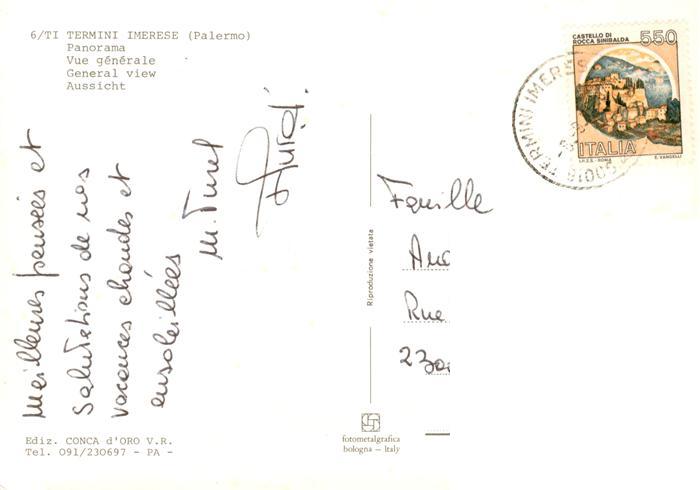 6/TI TERMINI IMERESE (Palermo)
Panorama
Vue générale
General view
Aussicht
Meilleures pensées et
Salutations de nos
vacances chaudes et
ensoleillées
M. Turel
Ediz. CONCA d'ORO V.R.
Tel. 091/230697 - PA -
Riproduzione vietata
fotometalgrafica
bologna - Italy
CASTELLO DI
ROCCA SINIBALDA
550
ITALIA
I.P.Z.S. - ROMA E. VANGELLI
TERMINI IMERESE
Famille
Rue